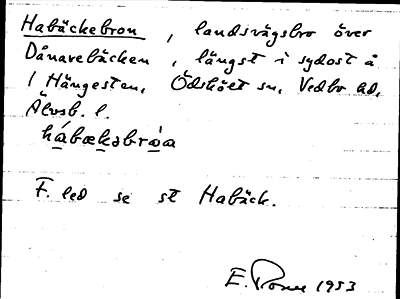 Habäckebron, landsvägsbro över
Dånarebäcken, längst i sydost å
1 Hängesten, Ödskölt sn, Vedbo hd,
Älvsb. l.
hábækəbròa
F. led se st Habäck.
E. 1953